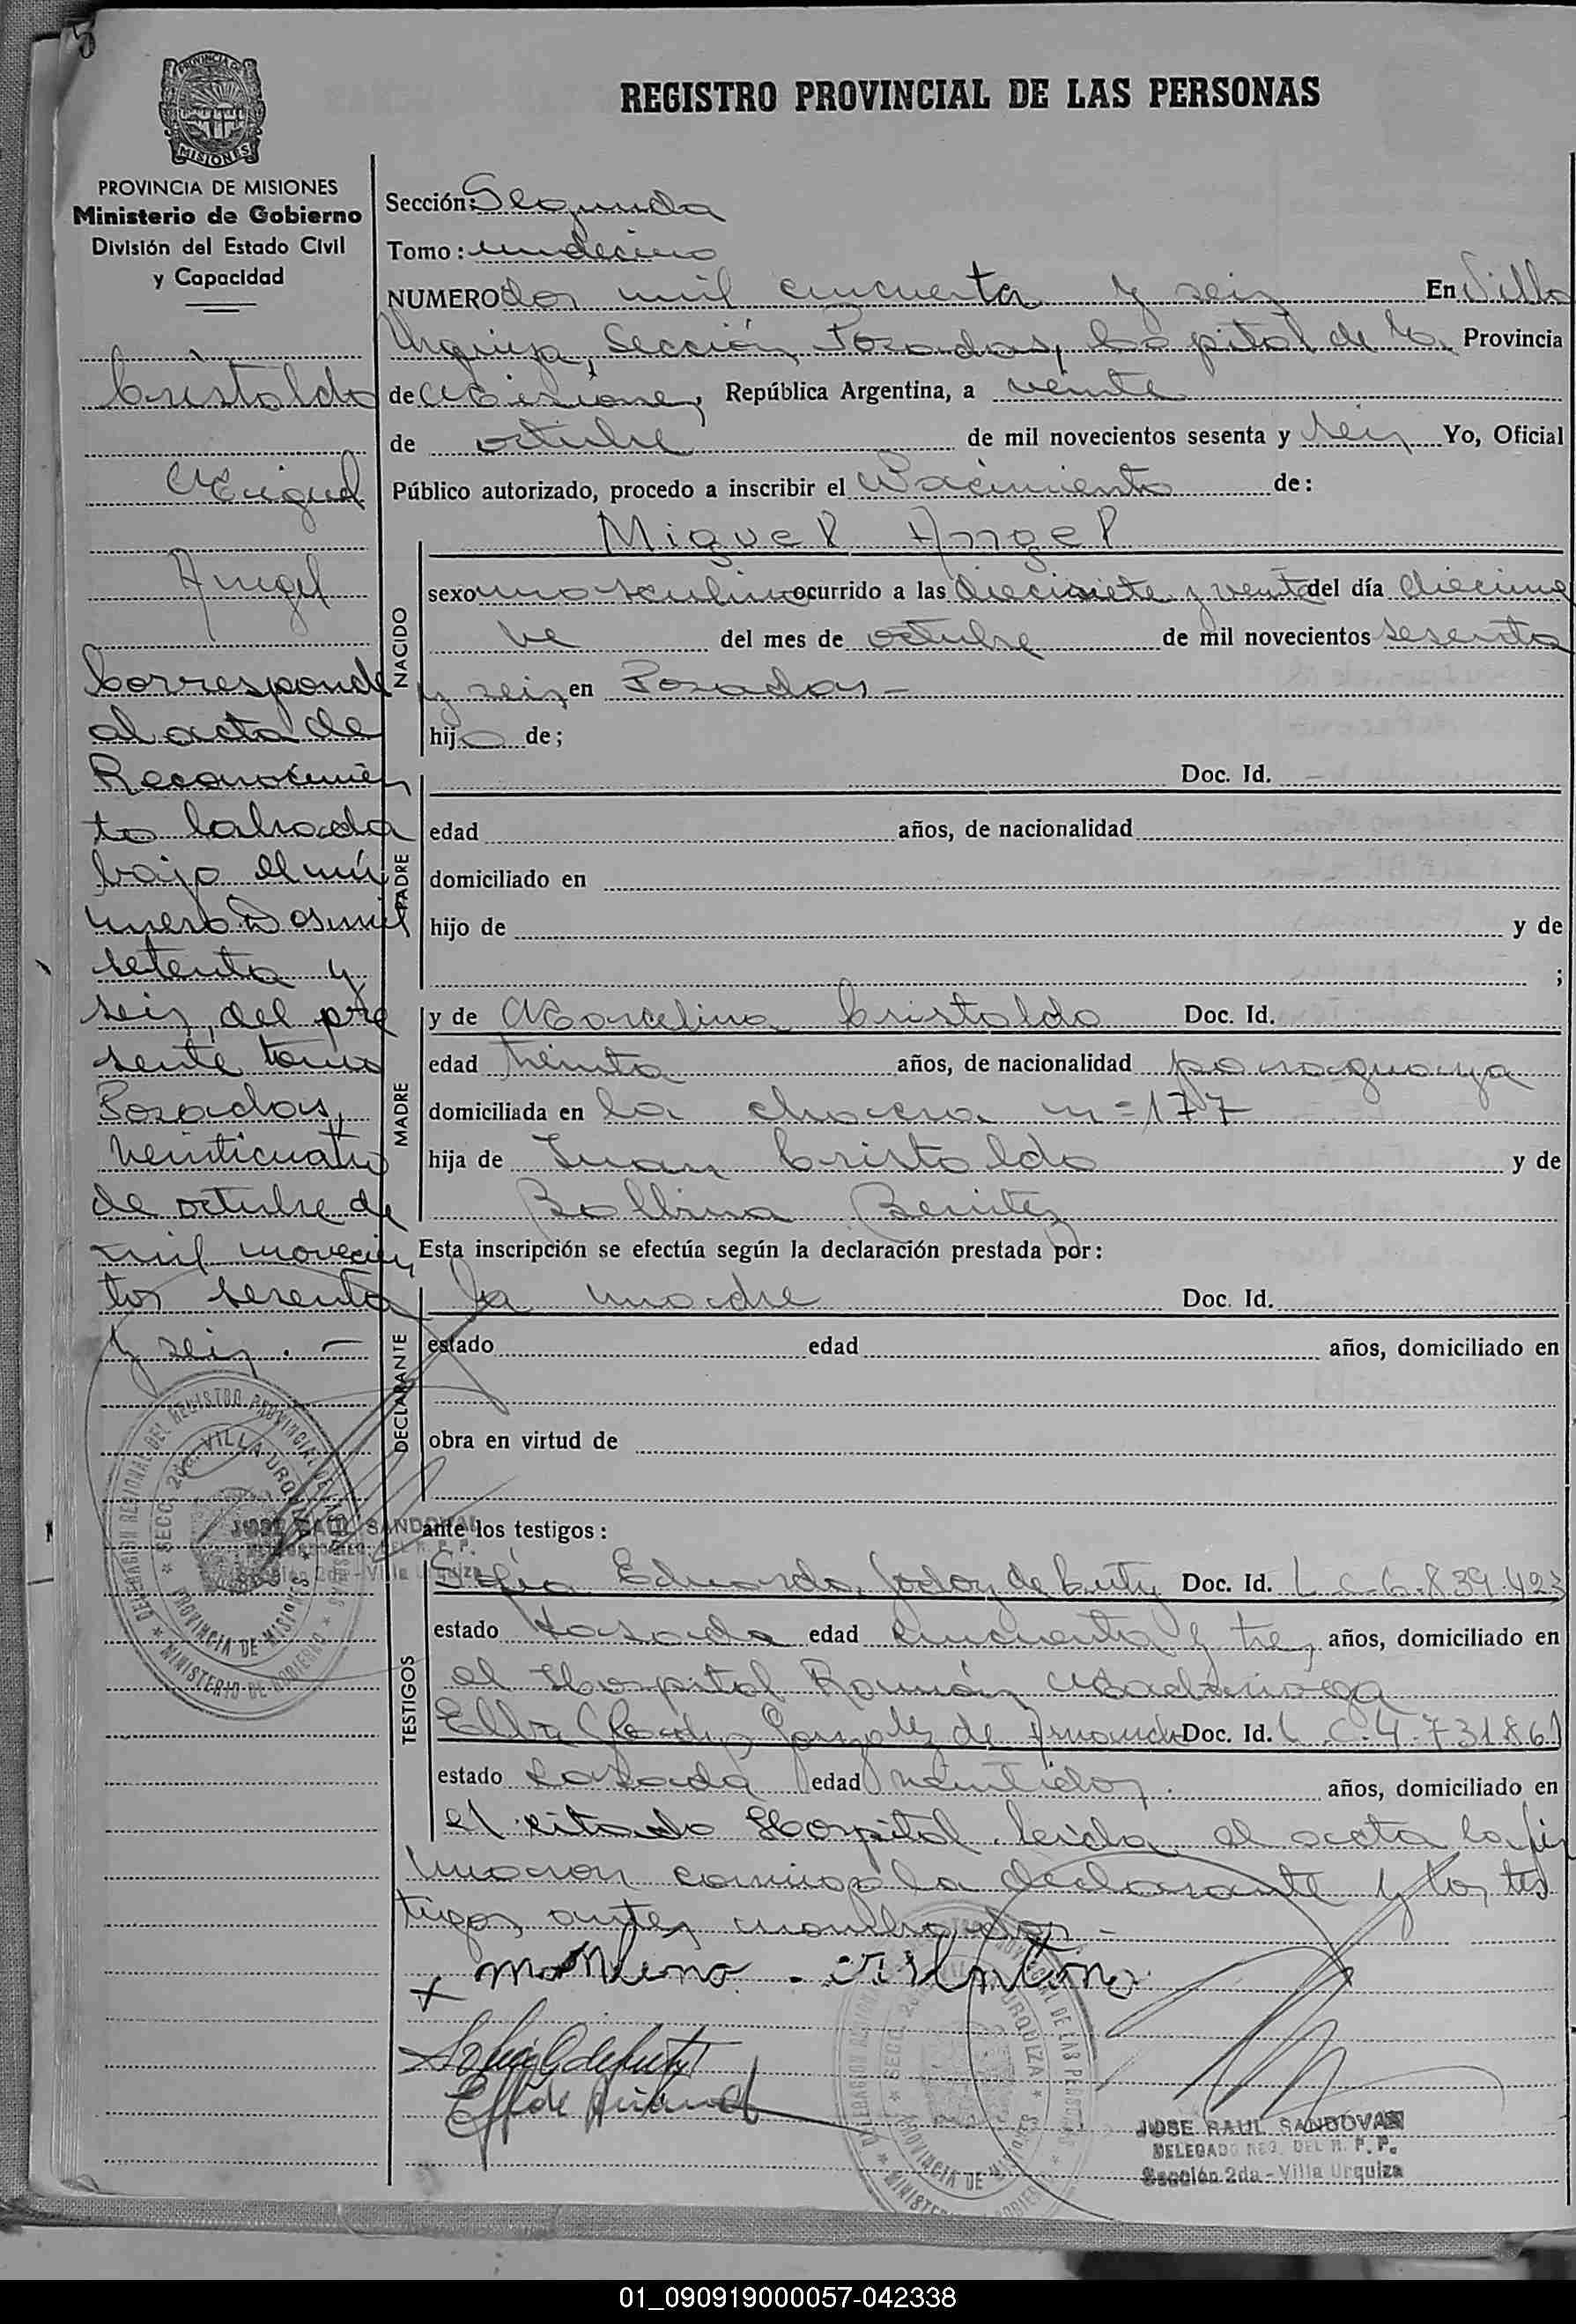 PROVINCIA DE MISIONES
REGISTRO PROVINCIAL DE LAS PERSONAS
PROVINCIA DE MISIONES
Ministerio de Gobierno
División del Estado Civil
y Capacidad
Cristaldo
Miguel
Angel
Corresponde
al acta de
Reconocimien
to labrada
bajo el nú
mero Dos mil
setenta y
seis, del pre
sente tomo
Posadas,
veinticuatro
de octubre de
mil novecien
tos sesenta
y seis. -
DELEGACION REGIONAL DEL REGISTRO PROVINCIAL DE LAS PERSONAS
* SECC. 2da. VILLA URQUIZA *
PROVINCIA DE MISIONES
* MINISTERIO DE GOBIERNO *
JOSE RAUL SANDOVAL
DELEGADO REG. DEL R. P. P.
Sección 2da - Villa Urquiza
Sección: Segunda
Tomo: undecimo
NUMERO dos mil cincuenta y seis En Villa
Urquiza, Sección, Posadas, Capital de la Provincia
de Misiones, República Argentina, a veinte
de octubre de mil novecientos sesenta y seis Yo, Oficial
Público autorizado, procedo a inscribir el Nacimiento de:
NACIDO
Miguel Angel
sexo masculino ocurrido a las diecisiete y veinte del día diecinue
ve del mes de octubre de mil novecientos sesenta
y seis en Posadas -
hijo de;
PADRE
Doc. Id.
edad años, de nacionalidad
domiciliado en
hijo de y de
;
MADRE
y de Marcelina Cristaldo Doc. Id.
edad treinta años, de nacionalidad paraguaya
domiciliada en la chacra nº 177
hija de Juan Cristaldo y de
Balbina Benitez
Esta inscripción se efectúa según la declaración prestada por:
DECLARANTE
la madre Doc. Id.
estado edad años, domiciliado en
obra en virtud de
ante los testigos:
TESTIGOS
Sofía Eduarda Godoy de Doc. Id. L.C. 6.839.423
estado casada edad cincuenta y tres años, domiciliado en
el Hospital Ramón Madariaga
Elba Gonzalez de Doc. Id. L.C. 4.731861
estado casada edad veintidos años, domiciliado en
el citado Hospital. leida el acta la fir
maron conmigo la declarante y los tes
tigos antes nombrados -
x
DELEGACION REGIONAL DE LAS PERSONAS
* SECC. 2da. URQUIZA *
PROVINCIA DE MISIONES
JOSE RAUL SANDOVAL
DELEGADO REG. DEL R. P. P.
Sección 2da - Villa Urquiza
01_090919000057-042338